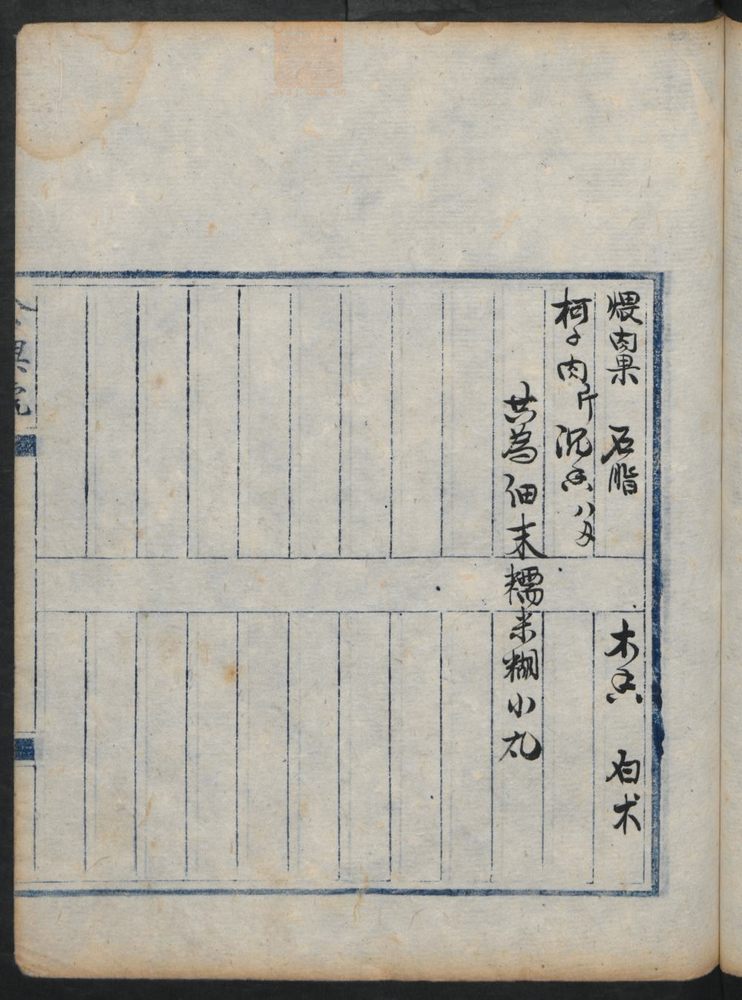 煨肉果 石脂 木香 白术
柯子肉 沉香 八
共為細末糯米糊小丸